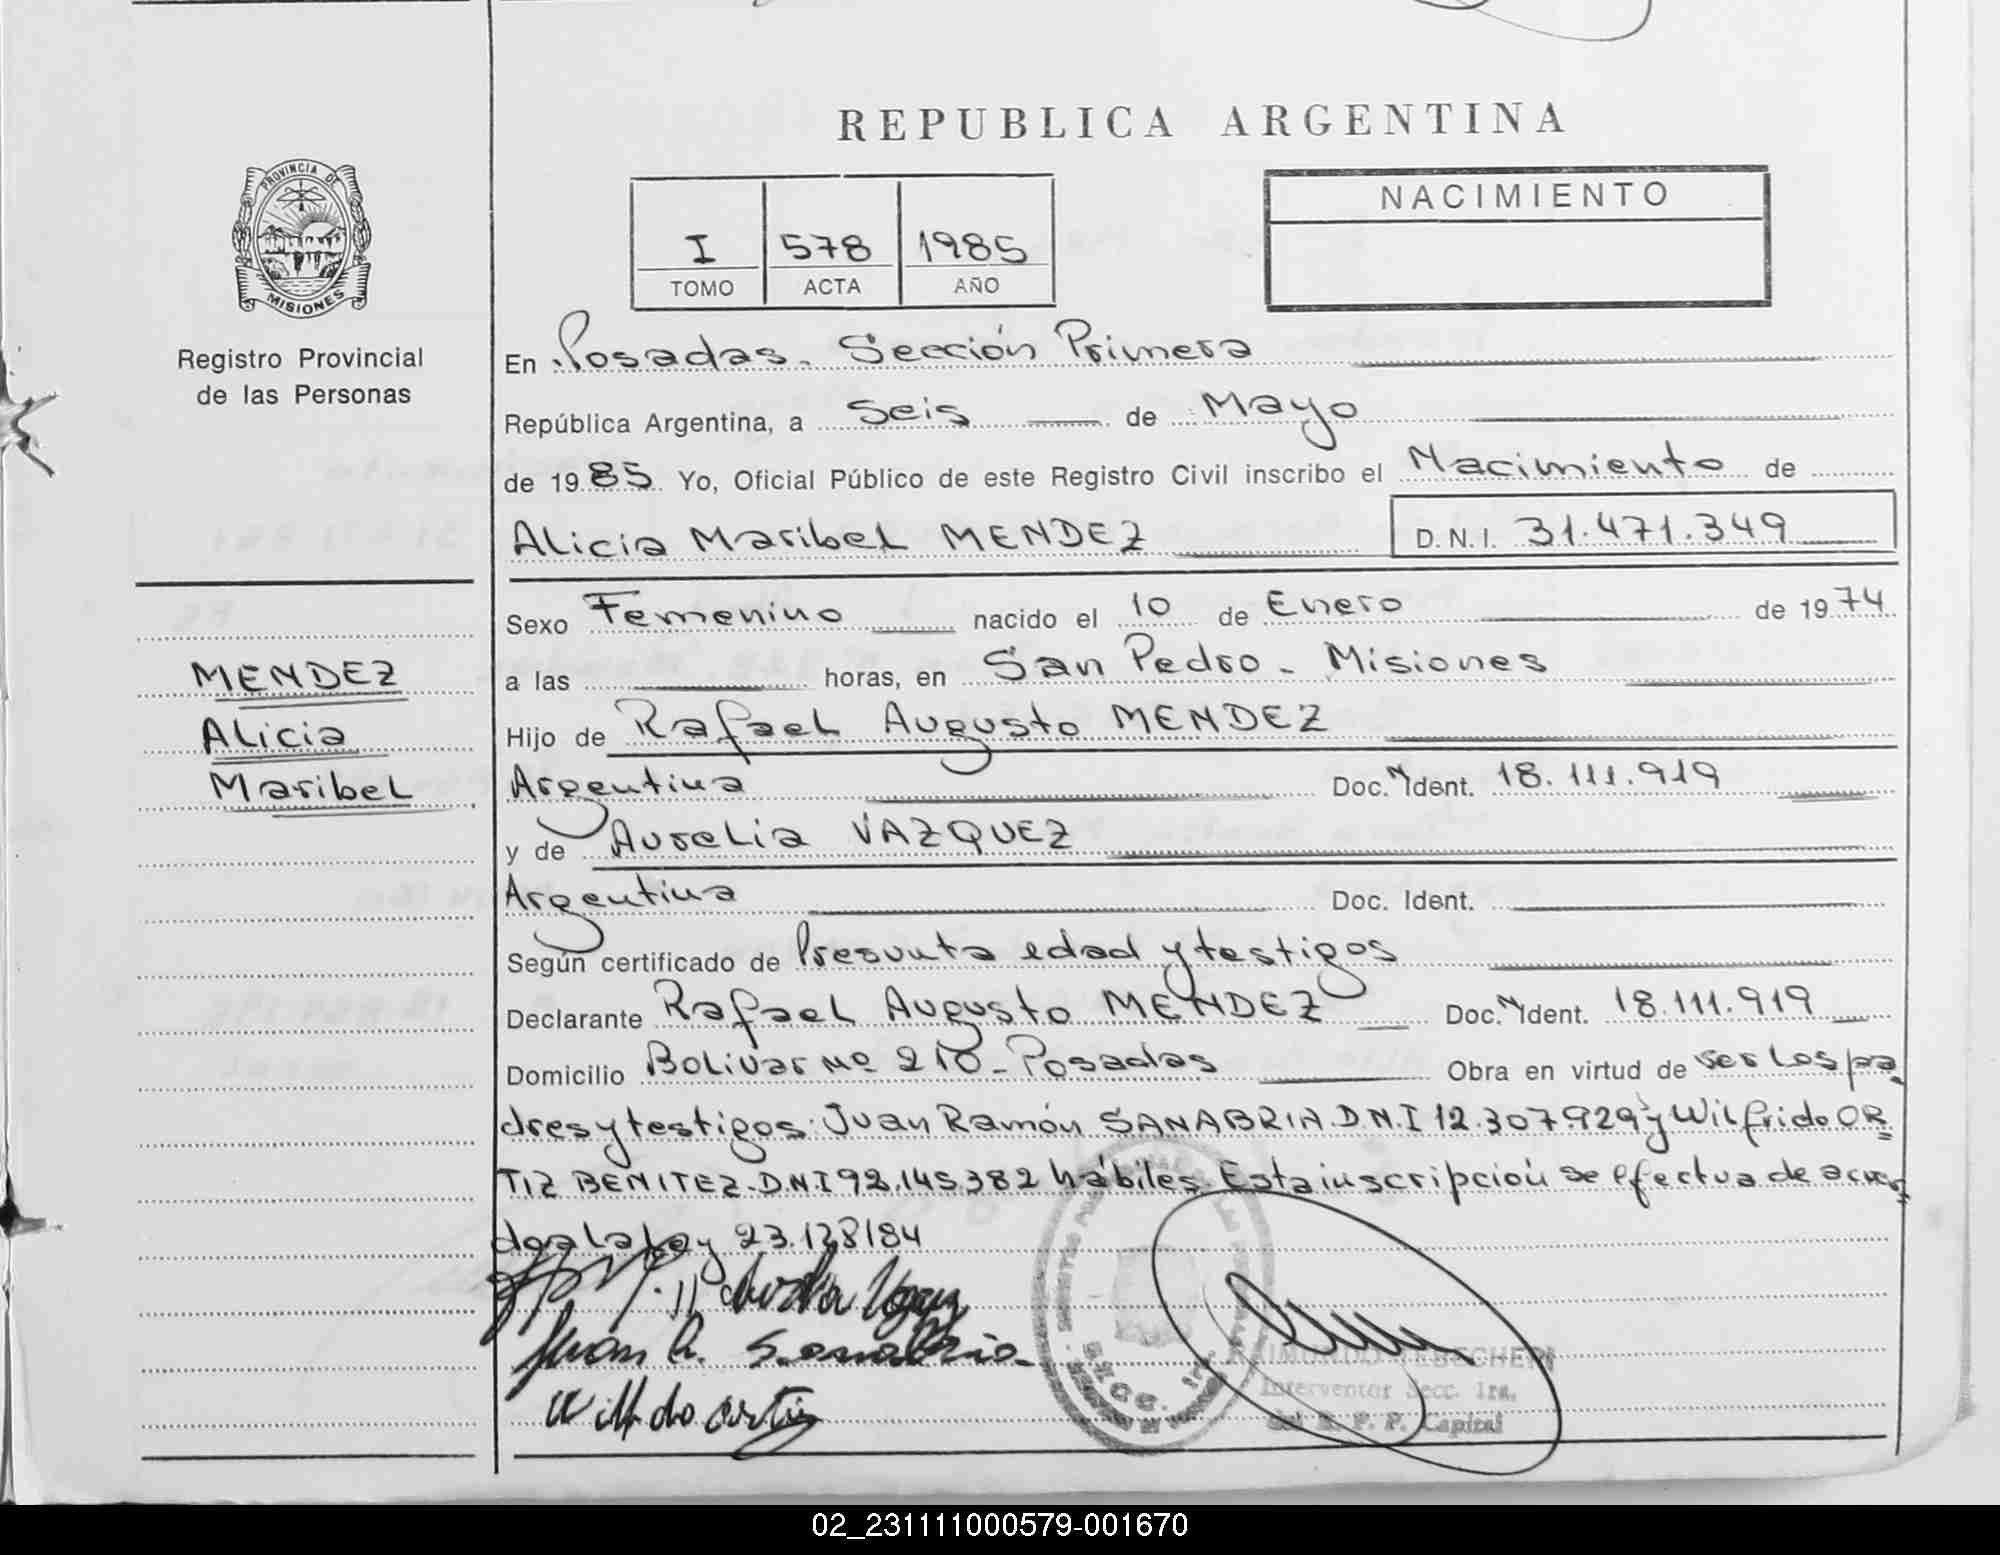 REPUBLICA ARGENTINA
PROVINCIA DE
MISIONES
Registro Provincial
de las Personas
I 578 1985
TOMO ACTA AÑO
NACIMIENTO
En Posadas. Sección Primera
República Argentina, a Seis de Mayo
de 1985 Yo, Oficial Público de este Registro Civil inscribo el Nacimiento de
Alicia Maribel MENDEZ D.N.I. 31.471.349
Sexo Femenino nacido el 10 de Enero de 1974
MENDEZ
Alicia
Maribel
a las horas, en San Pedro - Misiones
Hijo de Rafael Augusto MENDEZ
Argentina Doc. N Ident. 18.111.919
y de Aurelia VAZQUEZ
Argentina Doc. Ident.
Según certificado de Presunta edad y testigos
Declarante Rafael Augusto MENDEZ Doc. N Ident. 18.111.919
Domicilio Bolivar Nº 210 - Posadas Obra en virtud de ser los pa
dres y testigos: Juan Ramón SANABRIA D.N.I 12.307.929 y Wilfrido OR
TIZ BENITEZ-D.N.I 92.145.382 hábiles. Esta inscripción se efectua de acuer
do a la Ley 23.128/84
Juan R. Sanabria
RAIMUNDO
Interventor Secc. 1ra.
del R. P. P. Capital
02_231111000579-001670